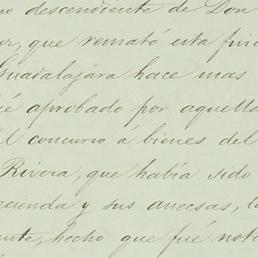 no descendiente de Don
ar, que remató esta fin
Guadalajara hace mas
ué aprobado por aquella
el concurso á bienes del
Rivera, que había sido
acienda y sus anecsas, l
ente, hecho que fué noto